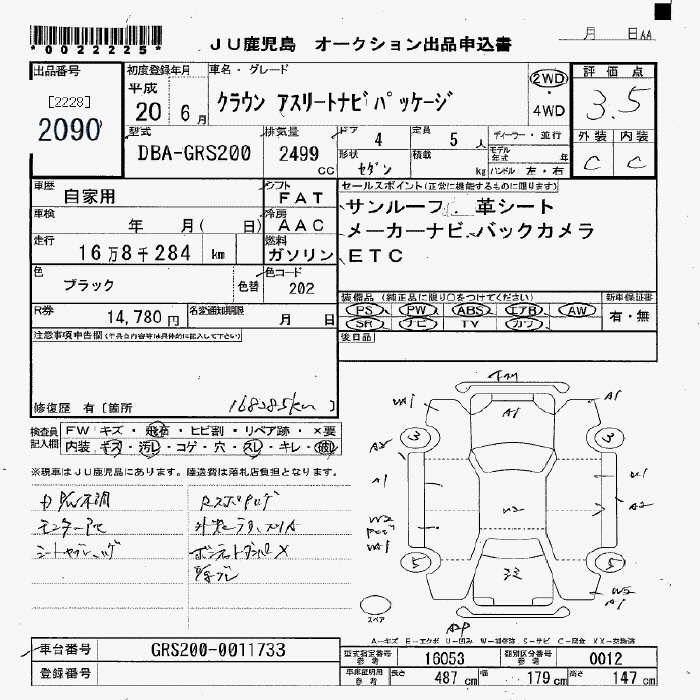 *0022225*
JU鹿児島 オークション出品申込書
月 日 AA
出品番号
[2228]
2090
初度登録年月
平成
20 6月
車名・グレード
クラウン アスリートナビパッケージ
2WD
・
4WD
評価点
3.5
外装 内装
C C
型式
DBA-GRS200
排気量
2499
CC
ドア
4
形状
セダン
定員
5 人
積載
kg
ディーラー・並行
モデル年式 年
ハンドル 左・右
車歴
自家用
シフト
FAT
車検
年 月( 日)
冷房
AAC
走行
16万8千284 km
燃料
ガソリン
色
ブラック
色替
色コード
202
R券
14,780円
名変通知期限
月 日
セールスポイント(正常に機能するものに限ります)
サンルーフ 革シート
メーカーナビ バックカメラ
ETC
装備品 (純正品に限り○をつけてください)
PS PW ABS エアB AW
SR ナビ TV カワ
新車保証書
有・無
後日品
注意事項申告欄(不具合内容等は具体的に記入して下さい)
修復歴 有 [箇所 ]
168285km
検査員記入欄
FW キズ・飛石・ヒビ割・リペア跡・×要
内装 キズ・汚レ・コゲ・穴・スレ・キレ・破レ
※現車はJU鹿児島にあります。陸送費は落札店負担となります。
A1
A1
A2
A1
A2
W2
3
3
5
5
スペア
A-キズ E-エクボ U-凹み W-補修跡 S-サビ C-腐食 XX-交換済
車台番号
GRS200-0011733
登録番号
型式指定番号
参考
16053
類別区分番号
参考
0012
車庫証明用
参考
長さ
487 cm
幅
179 cm
高さ
147 cm